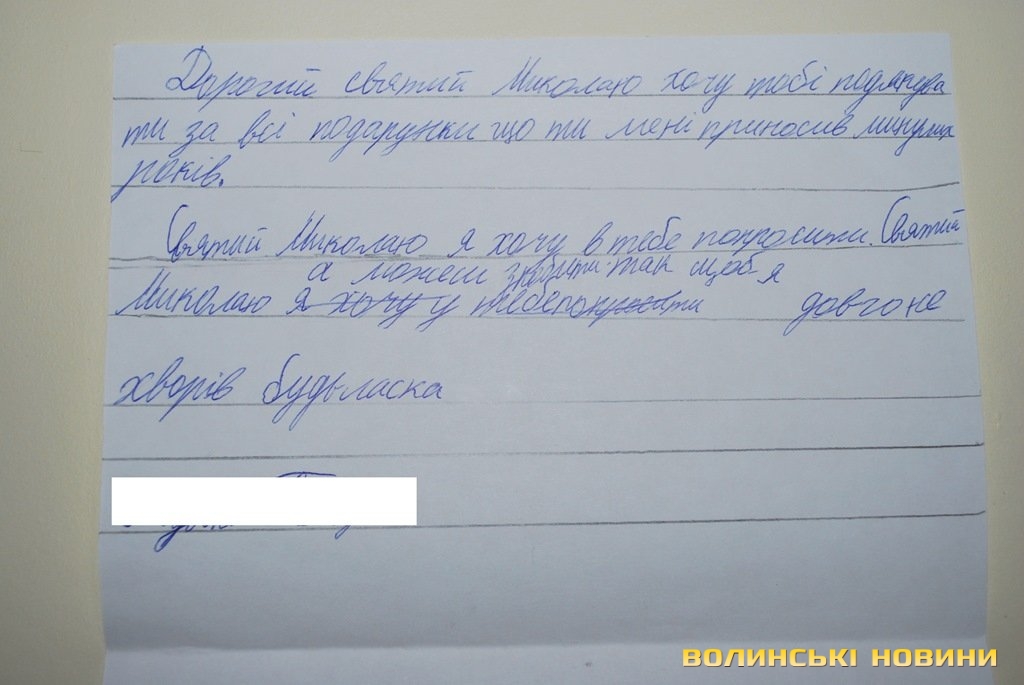 Дорогий святий Миколаю хочу тобі подякува
ти за всі подарунки що ти мені приносив минулих
років.
Святий Миколаю я хочу в тебе попросити. Святий
а можеш зробити так щоб я
Миколаю я хочу у тебе попросити довго не
хворів будьласка
ВОЛИНСЬКІ НОВИНИ